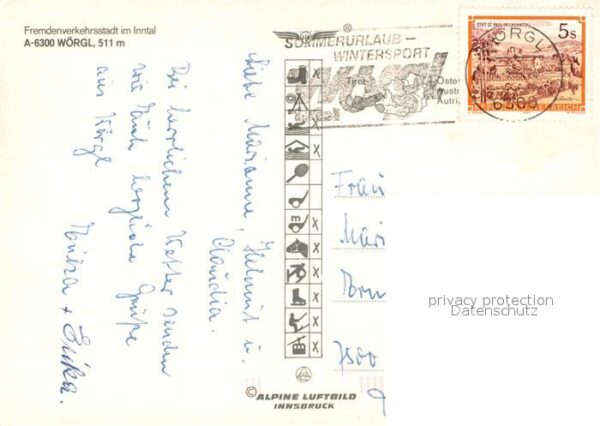 Fremdenverkehrsstadt im Inntal
A-6300 WÖRGL, 511 m
SOMMERURLAUB -
WINTERSPORT
WÖRGL
Tirol
Öster
Austri
Autri
STIFT ST. PAUL IM LAVANTTAL
5s
REPUBLIK ÖSTERREICH
WÖRGL
6300
Liebe Marianne, Helmut u.
Claudia.
Bei herrlichem Wetter senden
wir Euch herzliche Grüße
aus Wörgl
+ Erika.
Frau
Mari
Dorn
7500
m
x
x
x
x
x
x
x
x
x
privacy protection
Datenschutz
© ALPINE LUFTBILD
INNSBRUCK